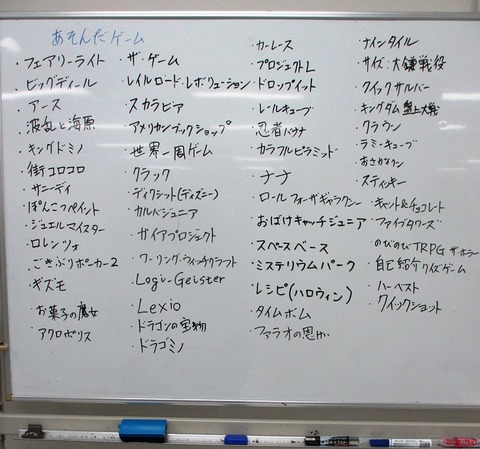 あそんだゲーム
・フェアリーライト
・ビッグディール
・アース
・波乱と海原
・キングドミノ
・街コロコロ
・サニーデイ
・ぽんこつペイント
・ジュエルマイスター
・ロレンツォ
・ごきぶりポーカー2
・ギズモ
・お菓子の魔女
・アクロポリス
・ザ・ゲーム
・レイルロード・レボリューション
・スカラビア
・アメリカンブックショップ
・世界一周ゲーム
・クラック
・ディクシット(ディズニー)
・カルバジュニア
・ガイアプロジェクト
・ワーリング・ウィッチクラフト
・Logic-Geister
・Lexio
・ドラゴンの宝物
・ドラゴミノ
・カーレース
・プロジェクトL
・ドロップイット
・レールキューブ
・忍者バナナ
・カラフルピラミッド
・ナナ
・ロールフォーザギャラクシー
・おばけキャッチジュニア
・スペースベース
・ミステリウムパーク
・レシピ(ハロウィン)
・タイムボム
・ファラオの恩恵
・ナインタイル
・サイズ:大鎌戦役
・クイックサルバー
・キングダム盤上大戦
・クラウン
・ラミーキューブ
・おさかなクン
・スティッキー
・キャット&チョコレート
・ファイブタワーズ
・のびのびTRPG ザ・ホラー
・自己紹介クイズゲーム
・ハーベスト
・クイックショット